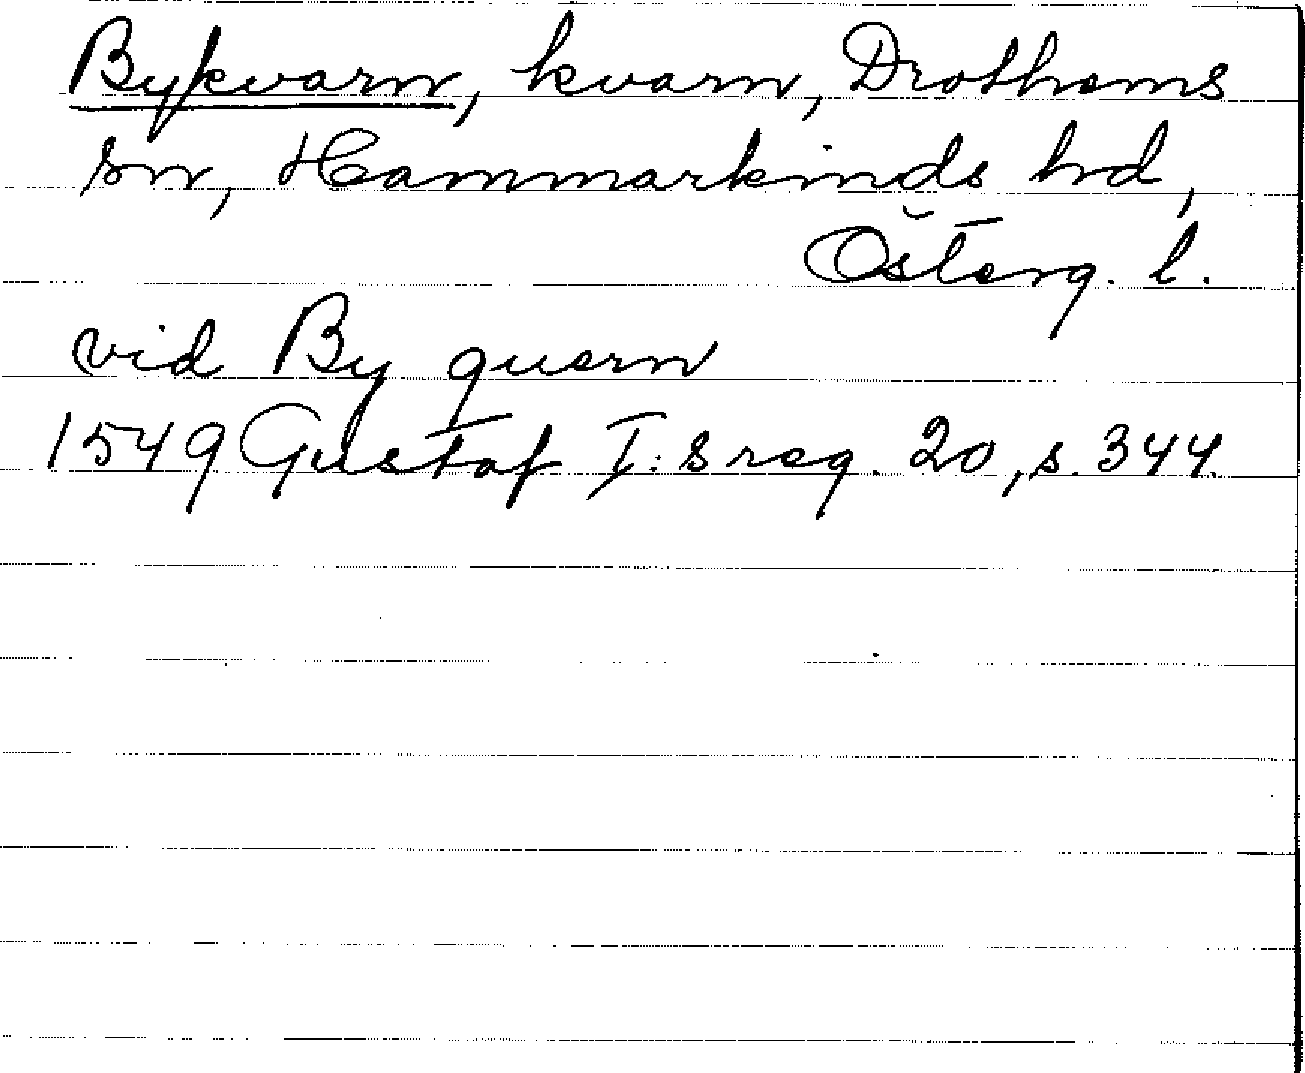 Bykvarn, kvarn, Drothems
sn, Hammarkinds hd,
Österg. l.
vid By quern
1549 Gustaf I:s reg. 20, s. 344.